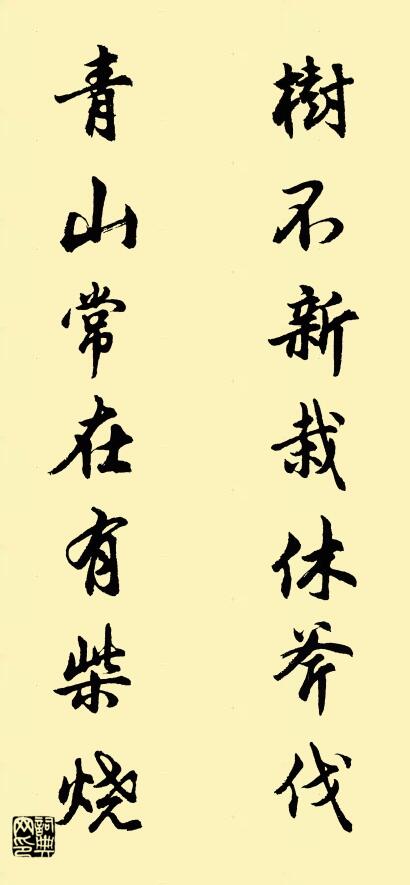 樹不新栽休斧伐
青山常在有柴烧
詞典网印